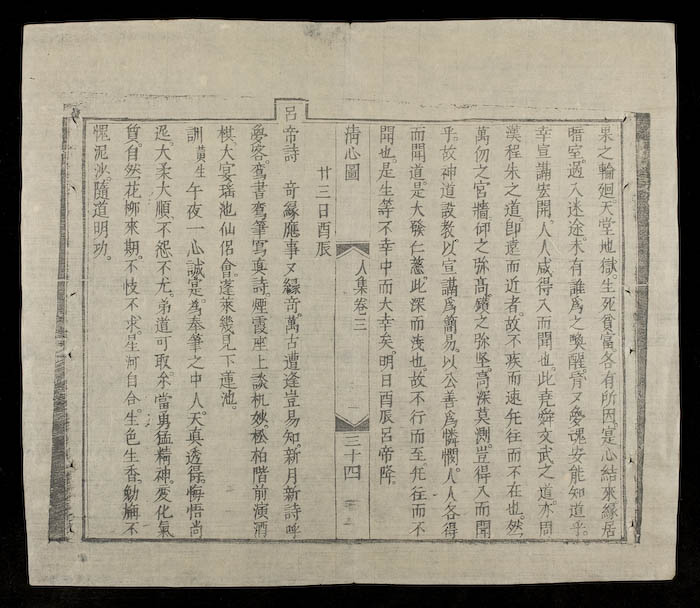 果之輪廻天堂地獄。生死貧富各有所因。寔心結來緣居
暗室。過入迷途。未有誰為之喚醒。脅又憂魂安能知道乎。
幸宣講宏開。人人咸得入而聞也。此堯舜文武之道。亦周
漢程朱之道。即遠而近者。故不疾而速。先往而不在也。然
萬仞之宮墻。仰之弥高。鑽之弥坚。高深莫測。豈得入而聞
乎。故神道設教。以宣講為簡易。以公善為憐憫。人人各得
而聞道。是大發仁慈。此深而淺也。故不行而至。先往而不
聞也。是生等不幸中而大幸矣。明日酉辰呂帝降。
清心圖
人集卷三
三十四
廿三日酉辰
呂帝詩 奇緣應事又緣奇。萬古遭逢豈易知。新月新詩呼
客。鸞書鸞筆寫真詩。煙霞座上談机妙。松柏階前演酒
棋。大宴瑤池仙侶會。蓬萊幾見下蓮池。
訓黃生 午夜一心誠。寔為奉筆之中人。天真透得。悔悟尚
遲。大柔大順、不怨不尤。弟道可取。尓當勇猛精神。变化氣
質。自然花柳來期。不忮不求。星河自合。生色生香。勉旃不
愧泥沙。隨道明功。